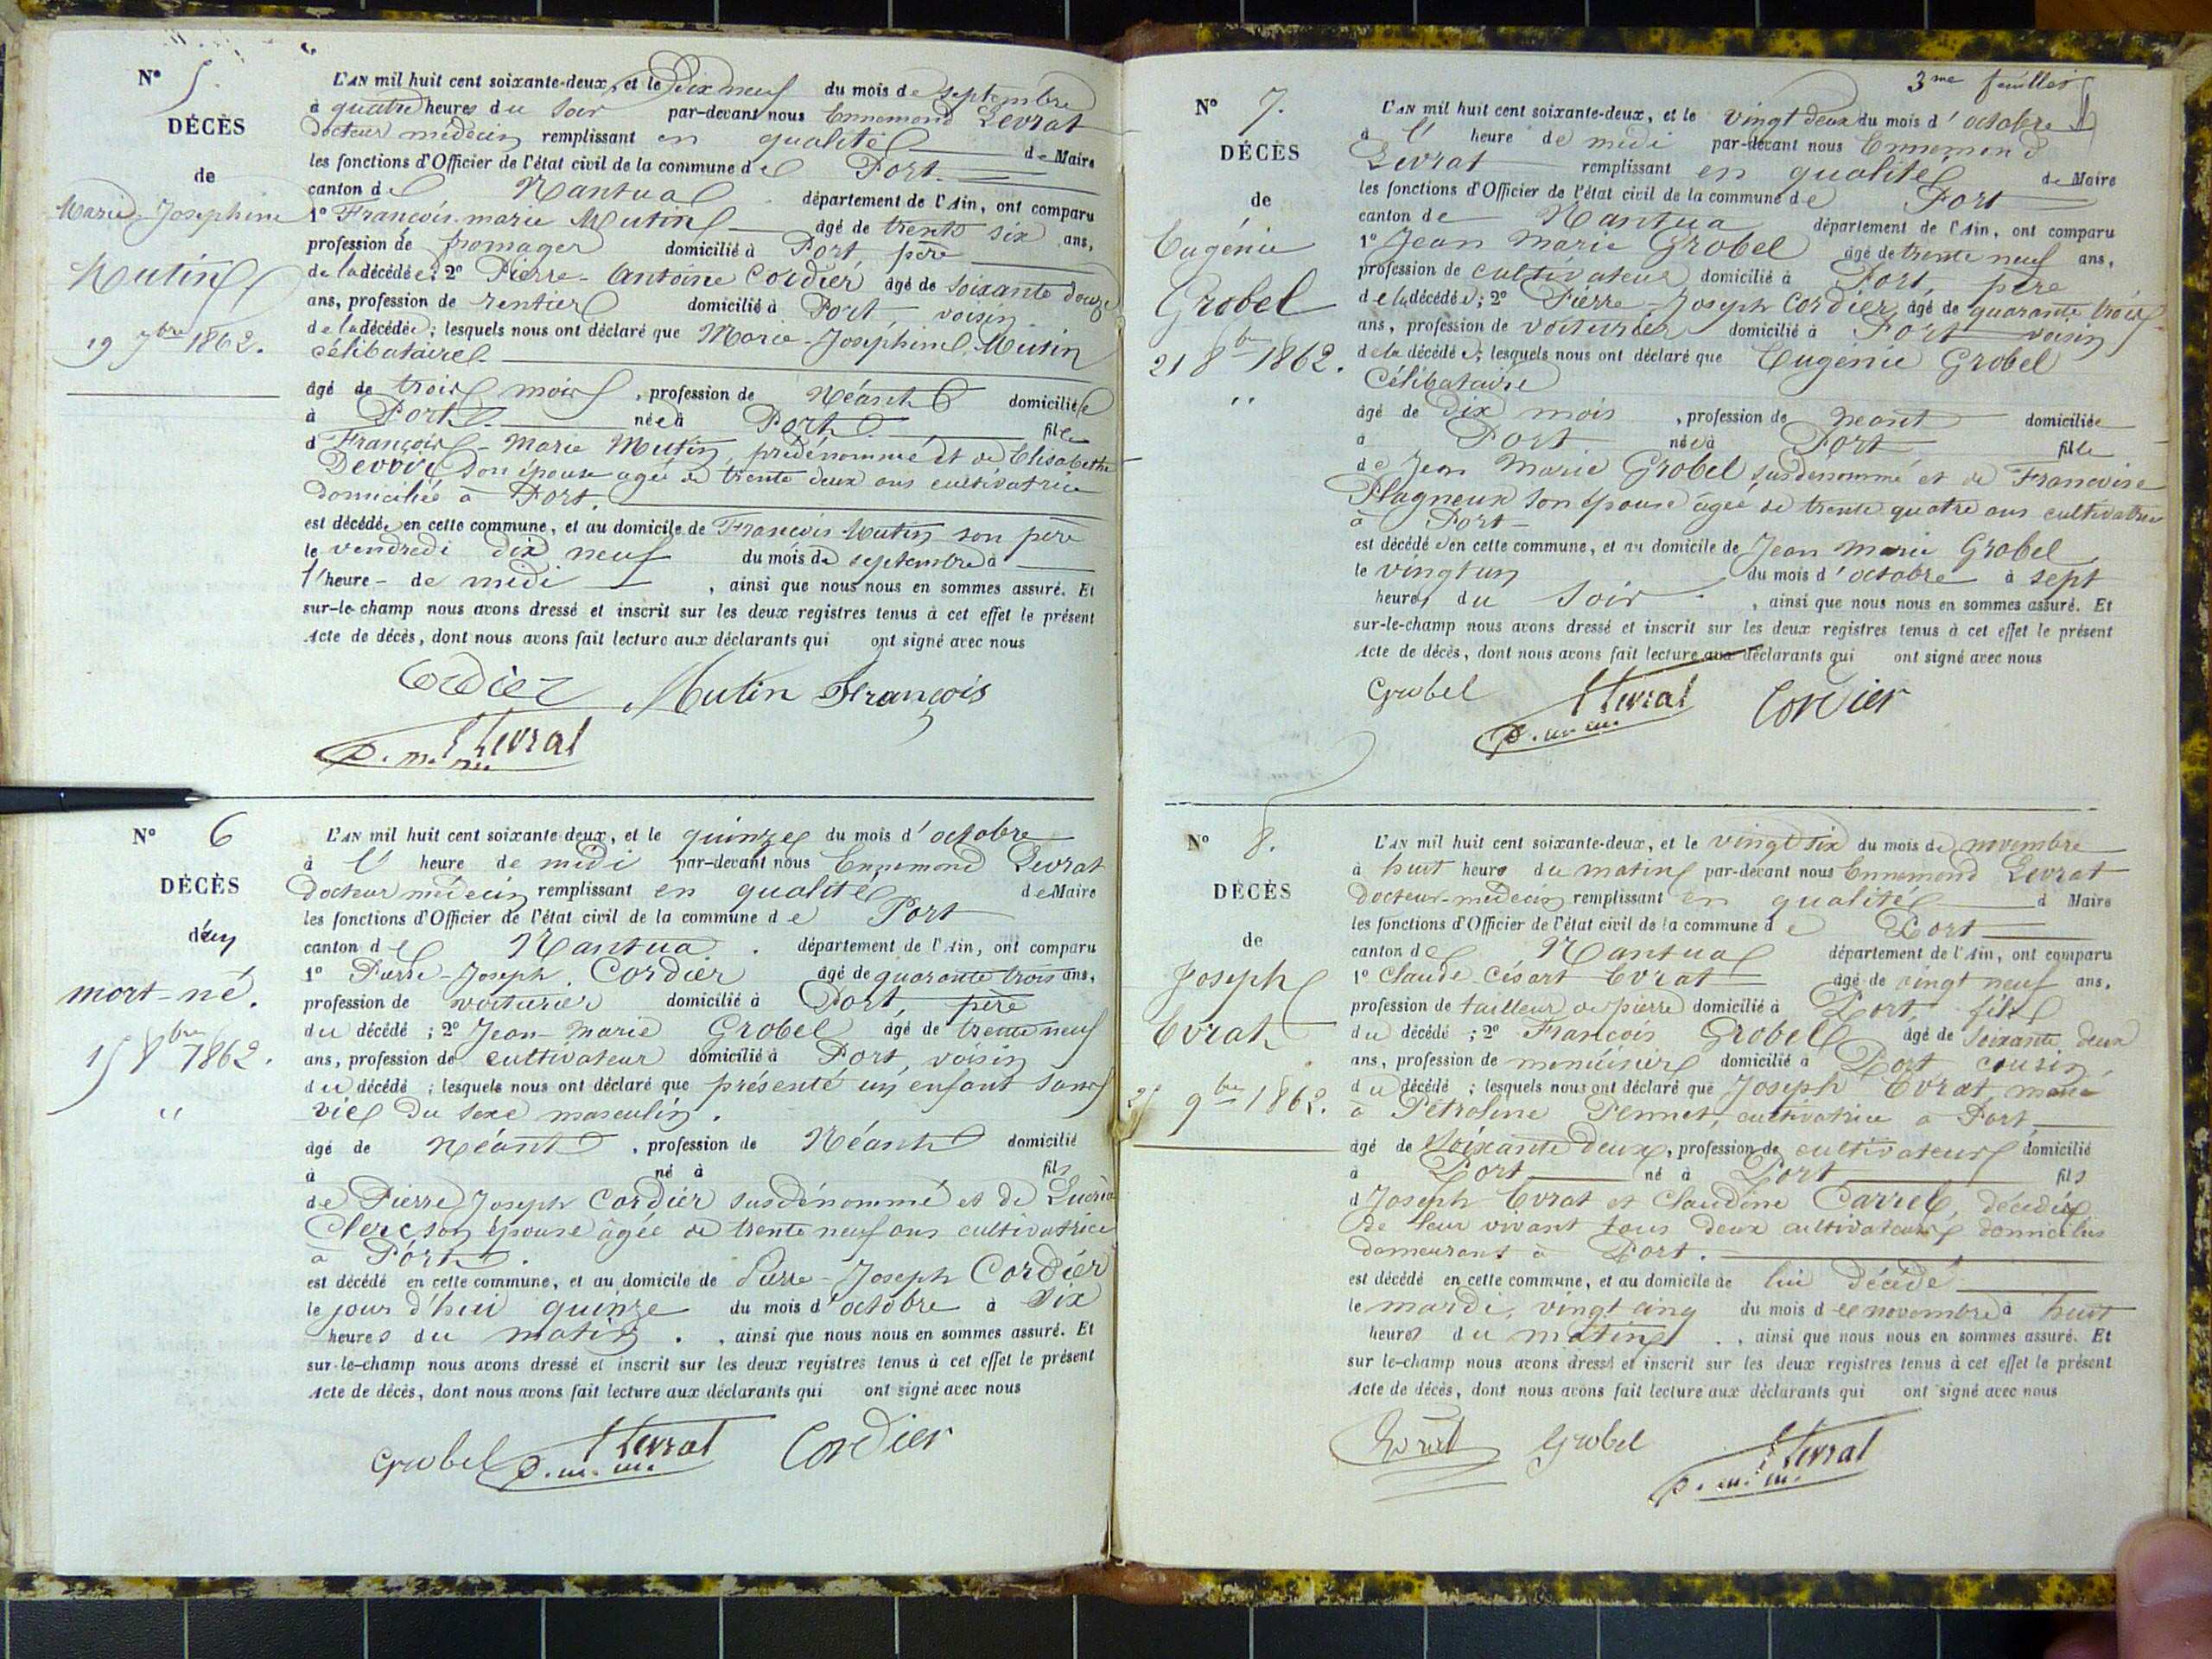 N° 5.
DÉCÈS
de
Marie-Josephine
Mutin
19 7bre 1862.
L'AN mil huit cent soixante-deux, et le Dix neuf du mois de septembre
à quatre heures du soir par-devant nous Ennemond Levrat
docteur médecin remplissant en qualité de Maire
les fonctions d'Officier de l'état civil de la commune de Port
canton de Nantua département de l'Ain, ont comparu
1° François-marie Mutin âgé de trente six ans,
profession de fromager domicilié à Port, père
de la décédée; 2° Pierre-Antoine Cordier âgé de soixante douze
ans, profession de rentier domicilié à Port, voisin
de la décédée; lesquels nous ont déclaré que Marie-Josephine Mutin
célibataire
âgé de trois mois, profession de Néant domiciliée
à Port née à Port fille
d François-Marie Mutin, prédénommé et de Elisabethe
son épouse agée de trente deux ans cultivatrice
domiciliée à Port.
est décédée en cette commune, et au domicile de François Mutin son père
le vendredi dix neuf du mois de septembre à
l'heure de midi, ainsi que nous nous en sommes assuré. Et
sur-le-champ nous avons dressé et inscrit sur les deux registres tenus à cet effet le présent
Acte de décès, dont nous avons fait lecture aux déclarants qui ont signé avec nous
Cordier Mutin François
Levrat
d. m. m.
N° 6
DÉCÈS
d'un
mort-né.
15 8bre 1862.
"
L'AN mil huit cent soixante-deux, et le quinze du mois d'octobre
à l'heure de midi par-devant nous Ennemond Levrat
Docteur médecin remplissant en qualité de Maire
les fonctions d'Officier de l'état civil de la commune de Port
canton de Nantua. département de l'Ain, ont comparu
1° Pierre-Joseph Cordier âgé de quarante trois ans,
profession de voiturier domicilié à Port, père
du décédé; 2° Jean-Marie Grobel âgé de trente neuf
ans, profession de cultivateur domicilié à Port, voisin
du décédé; lesquels nous ont déclaré que présenté un enfant sans
vie du sexe masculin.
âgé de Néant, profession de Néant domicilié
à né à fils
de Pierre Joseph Cordier susdénommé et de
Clerc son épouse âgée de trente neuf ans cultivatrice
à Port.
est décédé en cette commune, et au domicile de Pierre-Joseph Cordier
le jour d'hui quinze du mois d'octobre à Dix
heures du matin., ainsi que nous nous en sommes assuré. Et
sur-le-champ nous avons dressé et inscrit sur les deux registres tenus à cet effet le présent
Acte de décès, dont nous avons fait lecture aux déclarants qui ont signé avec nous
Grobel Levrat Cordier
d. m. m.
3me feuillet
N° 7.
DÉCÈS
de
Eugénie
Grobel
21 8bre 1862.
"
L'AN mil huit cent soixante-deux, et le vingt deux du mois d'octobre
à l'heure de midi par-devant nous Ennemond
Levrat remplissant en qualité de Maire
les fonctions d'Officier de l'état civil de la commune de Port
canton de Nantua département de l'Ain, ont comparu
1° Jean Marie Grobel âgé de trente neuf ans,
profession de cultivateur domicilié à Port, père
de la décédée; 2° Pierre-Joseph Cordier âgé de quarante trois
ans, profession de voiturier domicilié à Port voisin
de la décédée; lesquels nous ont déclaré que Eugénie Grobel
Célibataire
âgé de dix mois, profession de neant domiciliée
à Port née à Port fille
de Jean Marie Grobel susdenommé et de Francoise
Plagneux son épouse âgée de trente quatre ans cultivatrice
à Port
est décédée en cette commune, et au domicile de Jean Marie Grobel
le vingt un du mois d'octobre à sept
heures du soir., ainsi que nous nous en sommes assuré. Et
sur-le-champ nous avons dressé et inscrit sur les deux registres tenus à cet effet le présent
Acte de décès, dont nous avons fait lecture aux déclarants qui ont signé avec nous
Grobel Levrat Cordier
d. m. m.
N° 8.
DÉCÈS
de
Joseph
Evrat
25 9bre 1862.
L'AN mil huit cent soixante-deux, et le vingt six du mois de novembre
à huit heure du matin par-devant nous Ennemond Levrat
Docteur-médecin remplissant en qualité d Maire
les fonctions d'Officier de l'état civil de la commune de Port
canton de Nantua département de l'Ain, ont comparu
1° Claude Césart Evrat âgé de vingt neuf ans,
profession de tailleur de pierre domicilié à Port, fils
du décédé; 2° François Grobel âgé de soixante deux
ans, profession de menuisier domicilié à Port cousin
du décédé; lesquels nous ont déclaré que Joseph Evrat, marié
à Pétroline Pennet, cultivatrice a Port,
âgé de soixante deux, profession de cultivateur domicilié
à Port né à Port fils
d Joseph Evrat et Claudine Carrel, décédés
de leur vivant tous deux cultivateurs domiciliés
demeurant à Port.
est décédé en cette commune, et au domicile de lui décédé
le mardi, vingt cinq du mois de novembre à huit
heures du matin., ainsi que nous nous en sommes assuré. Et
sur-le-champ nous avons dressé et inscrit sur les deux registres tenus à cet effet le présent
Acte de décès, dont nous avons fait lecture aux déclarants qui ont signé avec nous
Evrat Grobel Levrat
d. m. m.